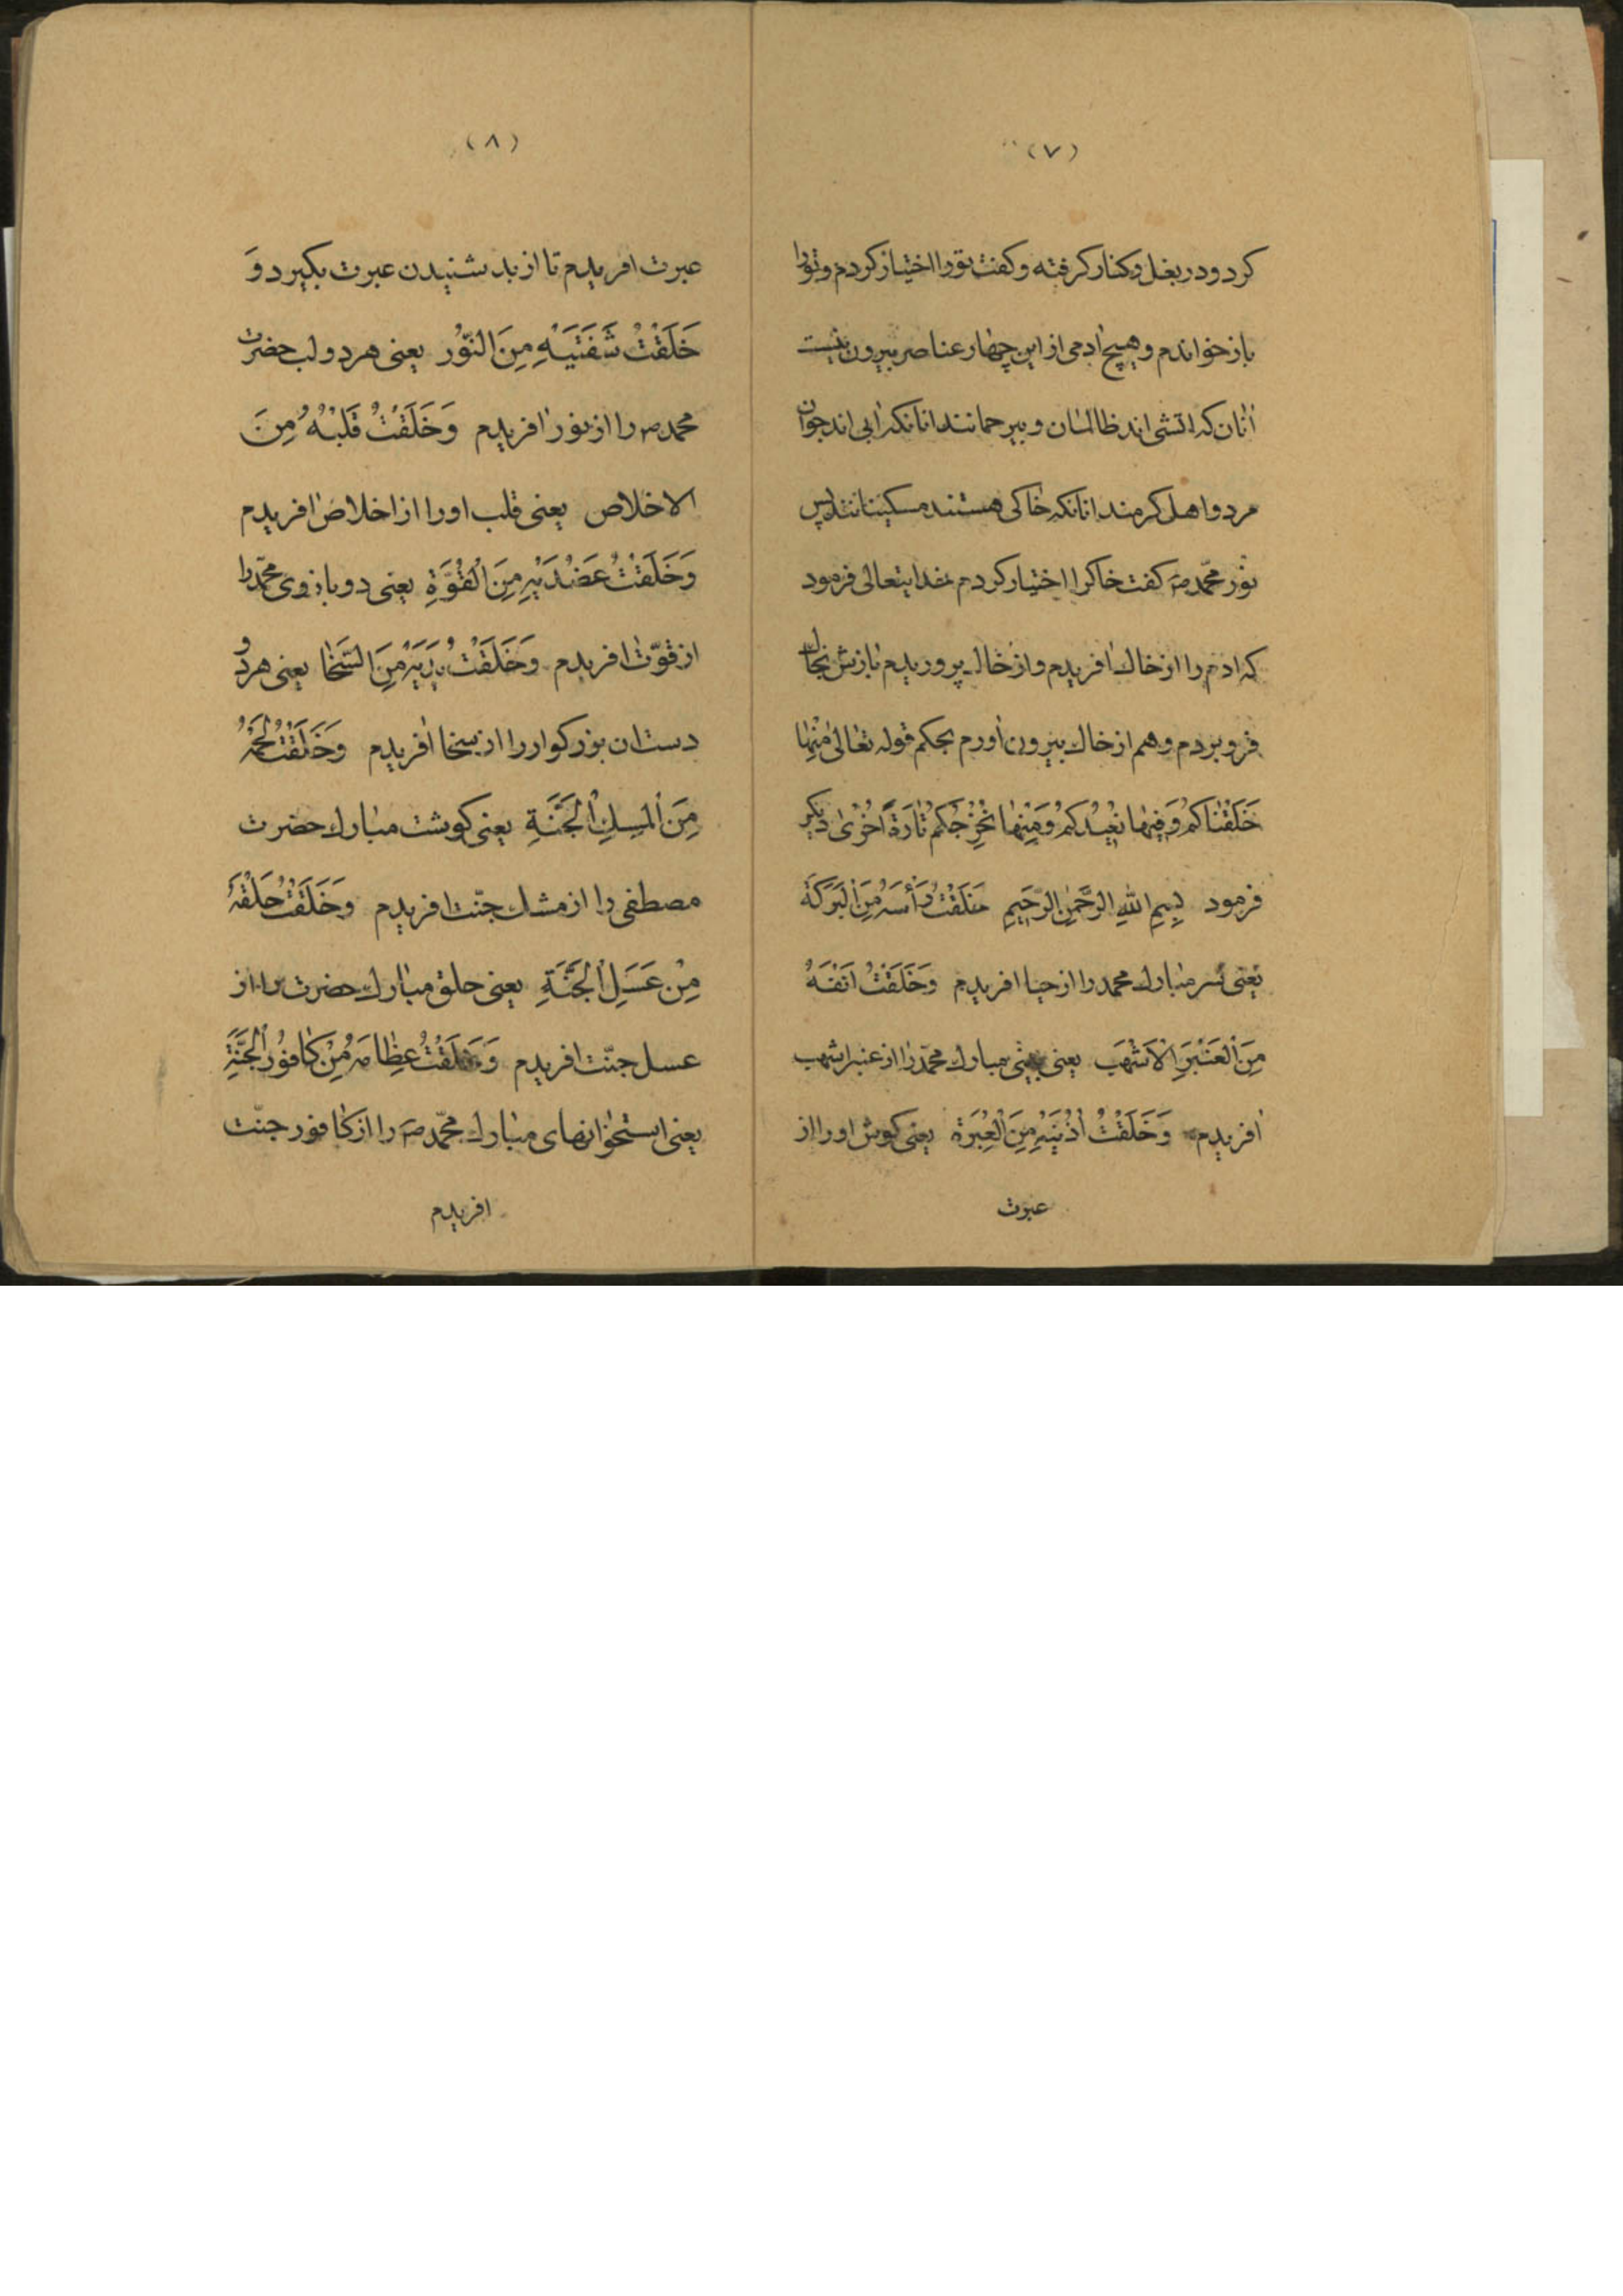 (٧)
کرد و در بغل و کنار کرفته و کفت تورا اختیار کردم و تورا
باز خواندم و هیچ ادمی از این چهار عناصر بیرون نیست
انان که اتشی اند ظالمان و بیرحمانند انانکه ابی اند جوان
مرد و اهل کرمند انانکه خاکی هستند مسکینانند پس
نور محمّد صه کفت خاکرا اختیار کردم خدایتعالی فرمود
که ادم را از خاك افریدم و از خاك پروریدم بازش بخاك
فرو بردم و هم از خاك بیرون اورم بحکم قوله تعالی مِنْهٰا
خَلَقْنٰاکُمْ وَفِیهٰا نُعِیدُکُمْ وَمِنْهٰا نُخْرِجُکُمْ تٰارَةً اُخْرٰی دیکر
فرمود بِسِمِ اللّٰهِ الرَّحْمٰنِ الرَّحِیمِ خَلَقْتُ رَأْسَهُ مِنَ اْلبَرَکَة
یعنی سر مبارك محمد را از حیا افریدم وَخَلَقْتُ اَنْفَهُ
مِنَ اْلعَنْبَرِ اْلاَشْهَب یعنی بینی مبارك محمّد را از عنبر اشهب
افریدم وَخَلَقْتُ اُذُنَیْهِ مِنَ اْلعِبْرَة یعنی کوش او را از
عبرت
(٨)
عبرت افریدم تا از بد شنیدن عبرت بکیرد وَ
خَلَقْتُ شَفَتَیْهِ مِنَ النّوُر یعنی هر دو لب حضرت
محمد صه را از نور افریدم وَخَلَقْتُ قَلْبَهُ مِنَ
الاخلاص یعنی قلب او را از اخلاص افریدم
وَخَلَقْتُ عَضُدَیْهِ مِنَ اْلقُوَّةِ یعنی دو بازوی محمّد را
از قوّت افریدم وَخَلَقْتُ یَدَیْهِ مِنَ السَّخٰا یعنی هر دو
دست ان بزرکوار را از سخا افریدم وَخَلَقْتُ لَحْمَهُ
مِنَ اْلمِسِكِ اْلجَنَّةِ یعنی کوشت مبارك حضرت
مصطفی را از مشك جنّت افریدم وَخَلَقْتُ حَلْقَهُ
مِنْ عَسَلِ اْلجَنَّةِ یعنی حلق مبارك حضرت را از
عسل جنّت افریدم وَخَلَقْتُ عِظٰامَهُ مِنْ کٰافوُرِ اْلجَنَّةِ
یعنی استخوانهای مبارك محمّد صه را از کافور جنّت
افریدم